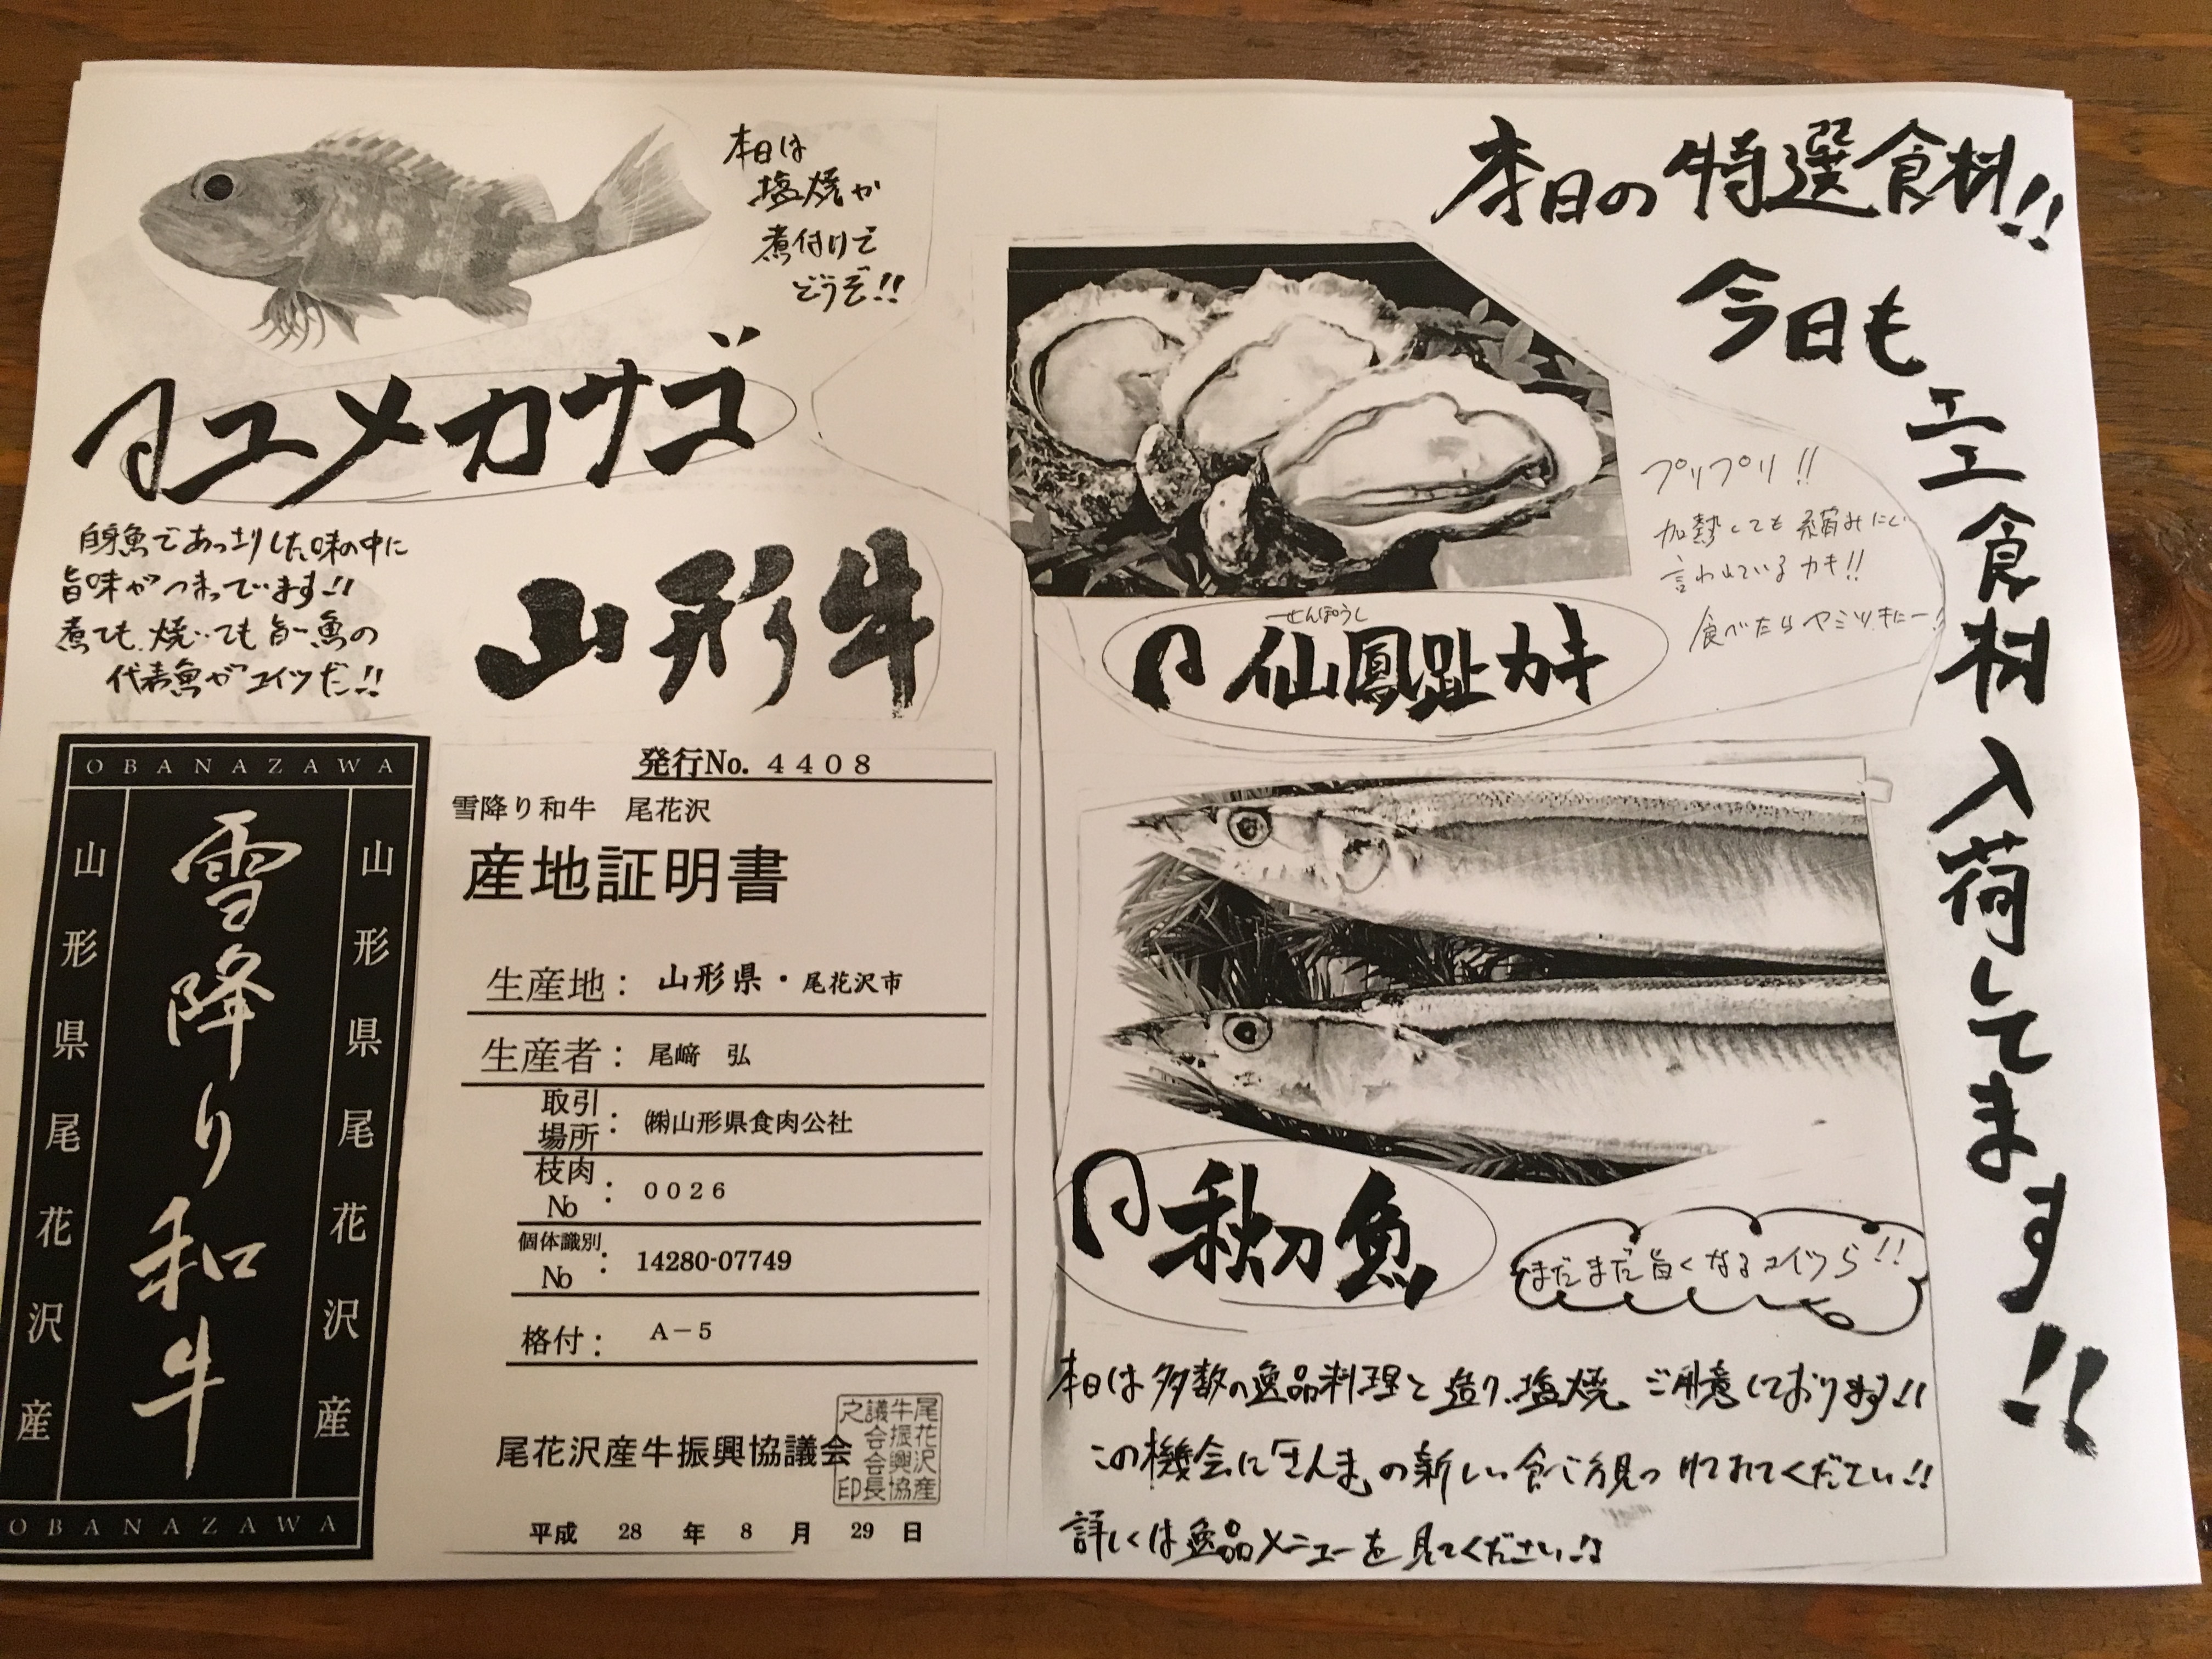 本日の特選食材!!
今日も
エエ食材入荷してます!!
プリプリ!!
加熱しても縮みにくい
言われているカキ!!
食べたらヤミツキにー!
せんぽうし
仙鳳趾カキ
秋刀魚
まだまだ旨くなるコイツら!!
本日は多数の逸品料理と造り、塩焼ご用意しております!!
この機会に「さんま」の新しい食べ方見つけてみてください!!
詳しくは逸品メニューを見てください!!
本日は
塩焼か
煮付けで
どうぞ!!
ユメカサゴ
白身魚であっさりした味の中に
旨味がつまってます!!
煮ても、焼いても旨い魚の
代表魚がコイツだ!!
山形牛
OBANAZAWA
山形県尾花沢産
雪降り和牛
山形県尾花沢産
OBANAZAWA
発行No. 4408
雪降り和牛 尾花沢
産地証明書
生産地: 山形県・尾花沢市
生産者: 尾﨑 弘
取引場所: ㈱山形県食肉公社
枝肉No: 0026
個体識別No: 14280-07749
格付: A-5
尾花沢産牛振興協議会
尾花沢産
牛振興協
議会会長
之印
平成 28 年 8 月 29 日